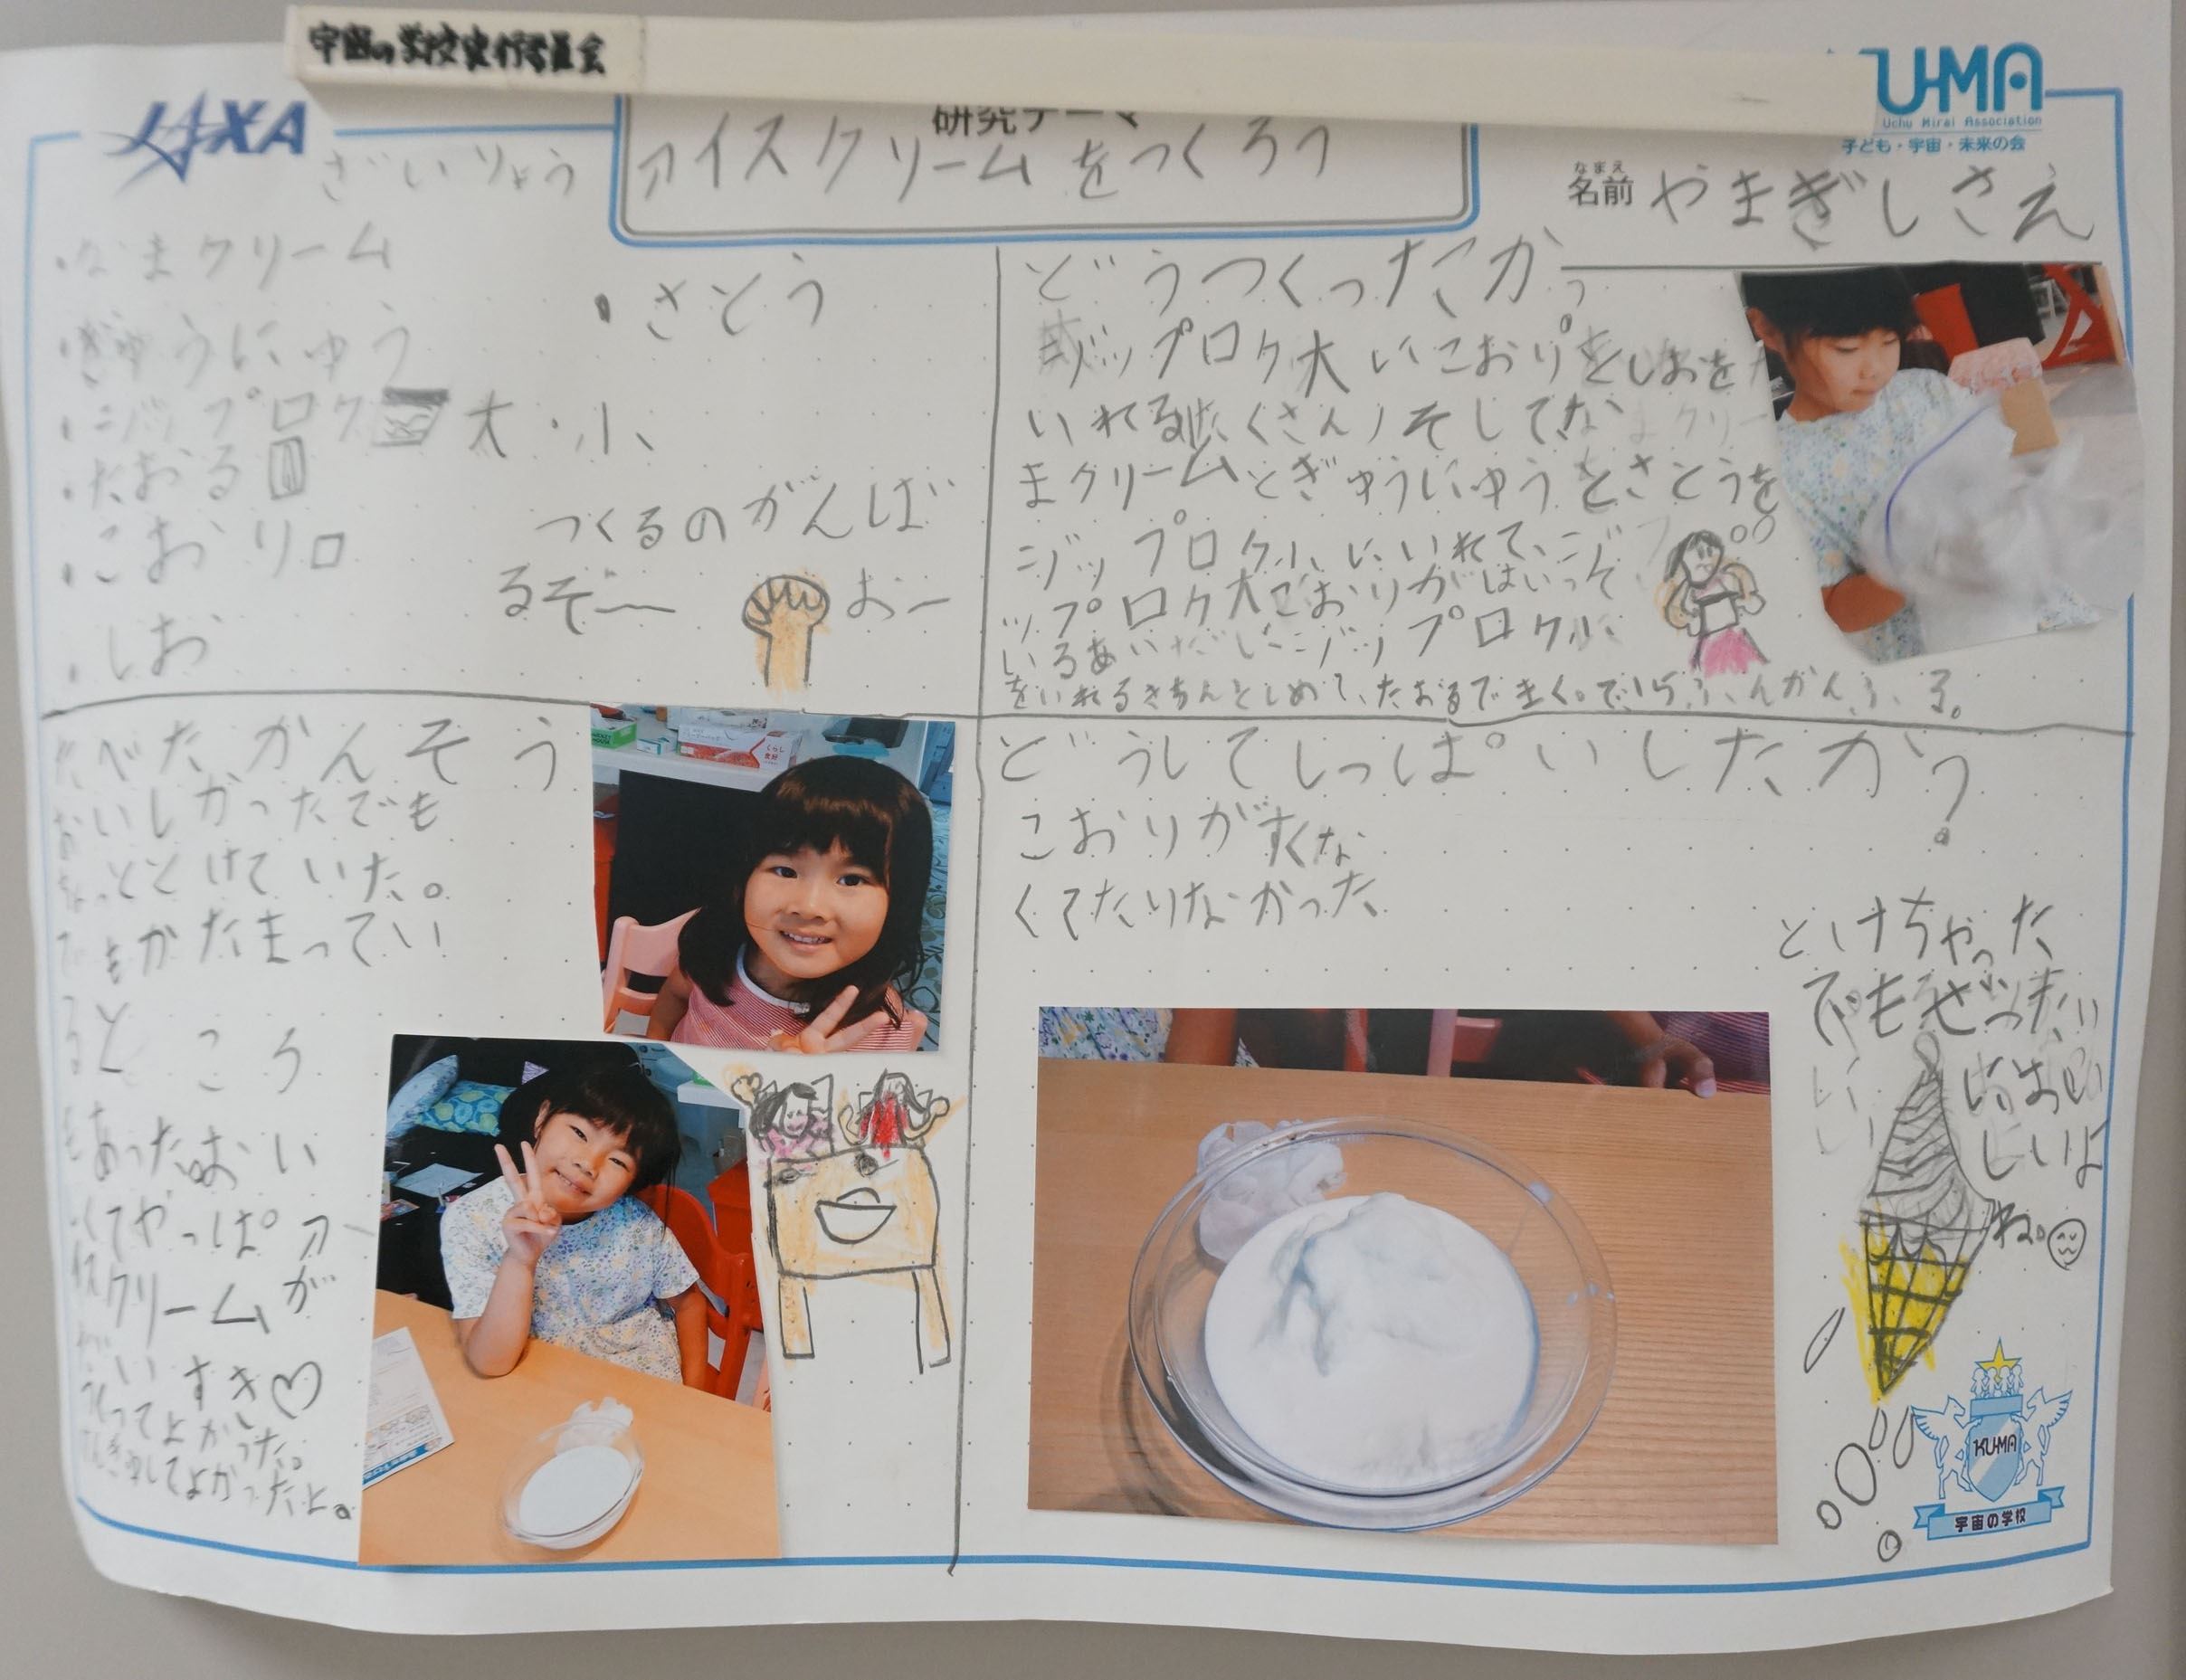 宇宙の学校実行委員会
JAXA
KU-MA
Uchu Mirai Association
子ども・宇宙・未来の会
研究テーマ
アイスクリームをつくろう
なまえ
名前 やまぎしさえ
ざいりょう
・なまクリーム
・ぎゅうにゅう
・さとう
・ジップロク 大・小
・たおる
・こおり
・しお
つくるのがんば
るぞー おー
どうつくったか。
ジップロク大いこおりとしおを
いれる(たくさん)そしてな
まクリームとぎゅうにゅうとさとうを
ジップロク小にいれて、ジ
ップロク大こおりがはいって
いるあいだにジップロク小
をいれるきちんとしめて、たおるでまく。
たべたかんそう
おいしかったでも
ちょっととけていた。
でもかたまってい
るところ
もあった
くてやっぱア
イスクリームが
だいすき♡
つくってよかった。
してよかったよ。
どうしてしっぱいしたか?
こおりがすくな
くてたりなかった
とけちゃった
でもぜったい
おい
しいよ
ね。
KU-MA
宇宙の学校